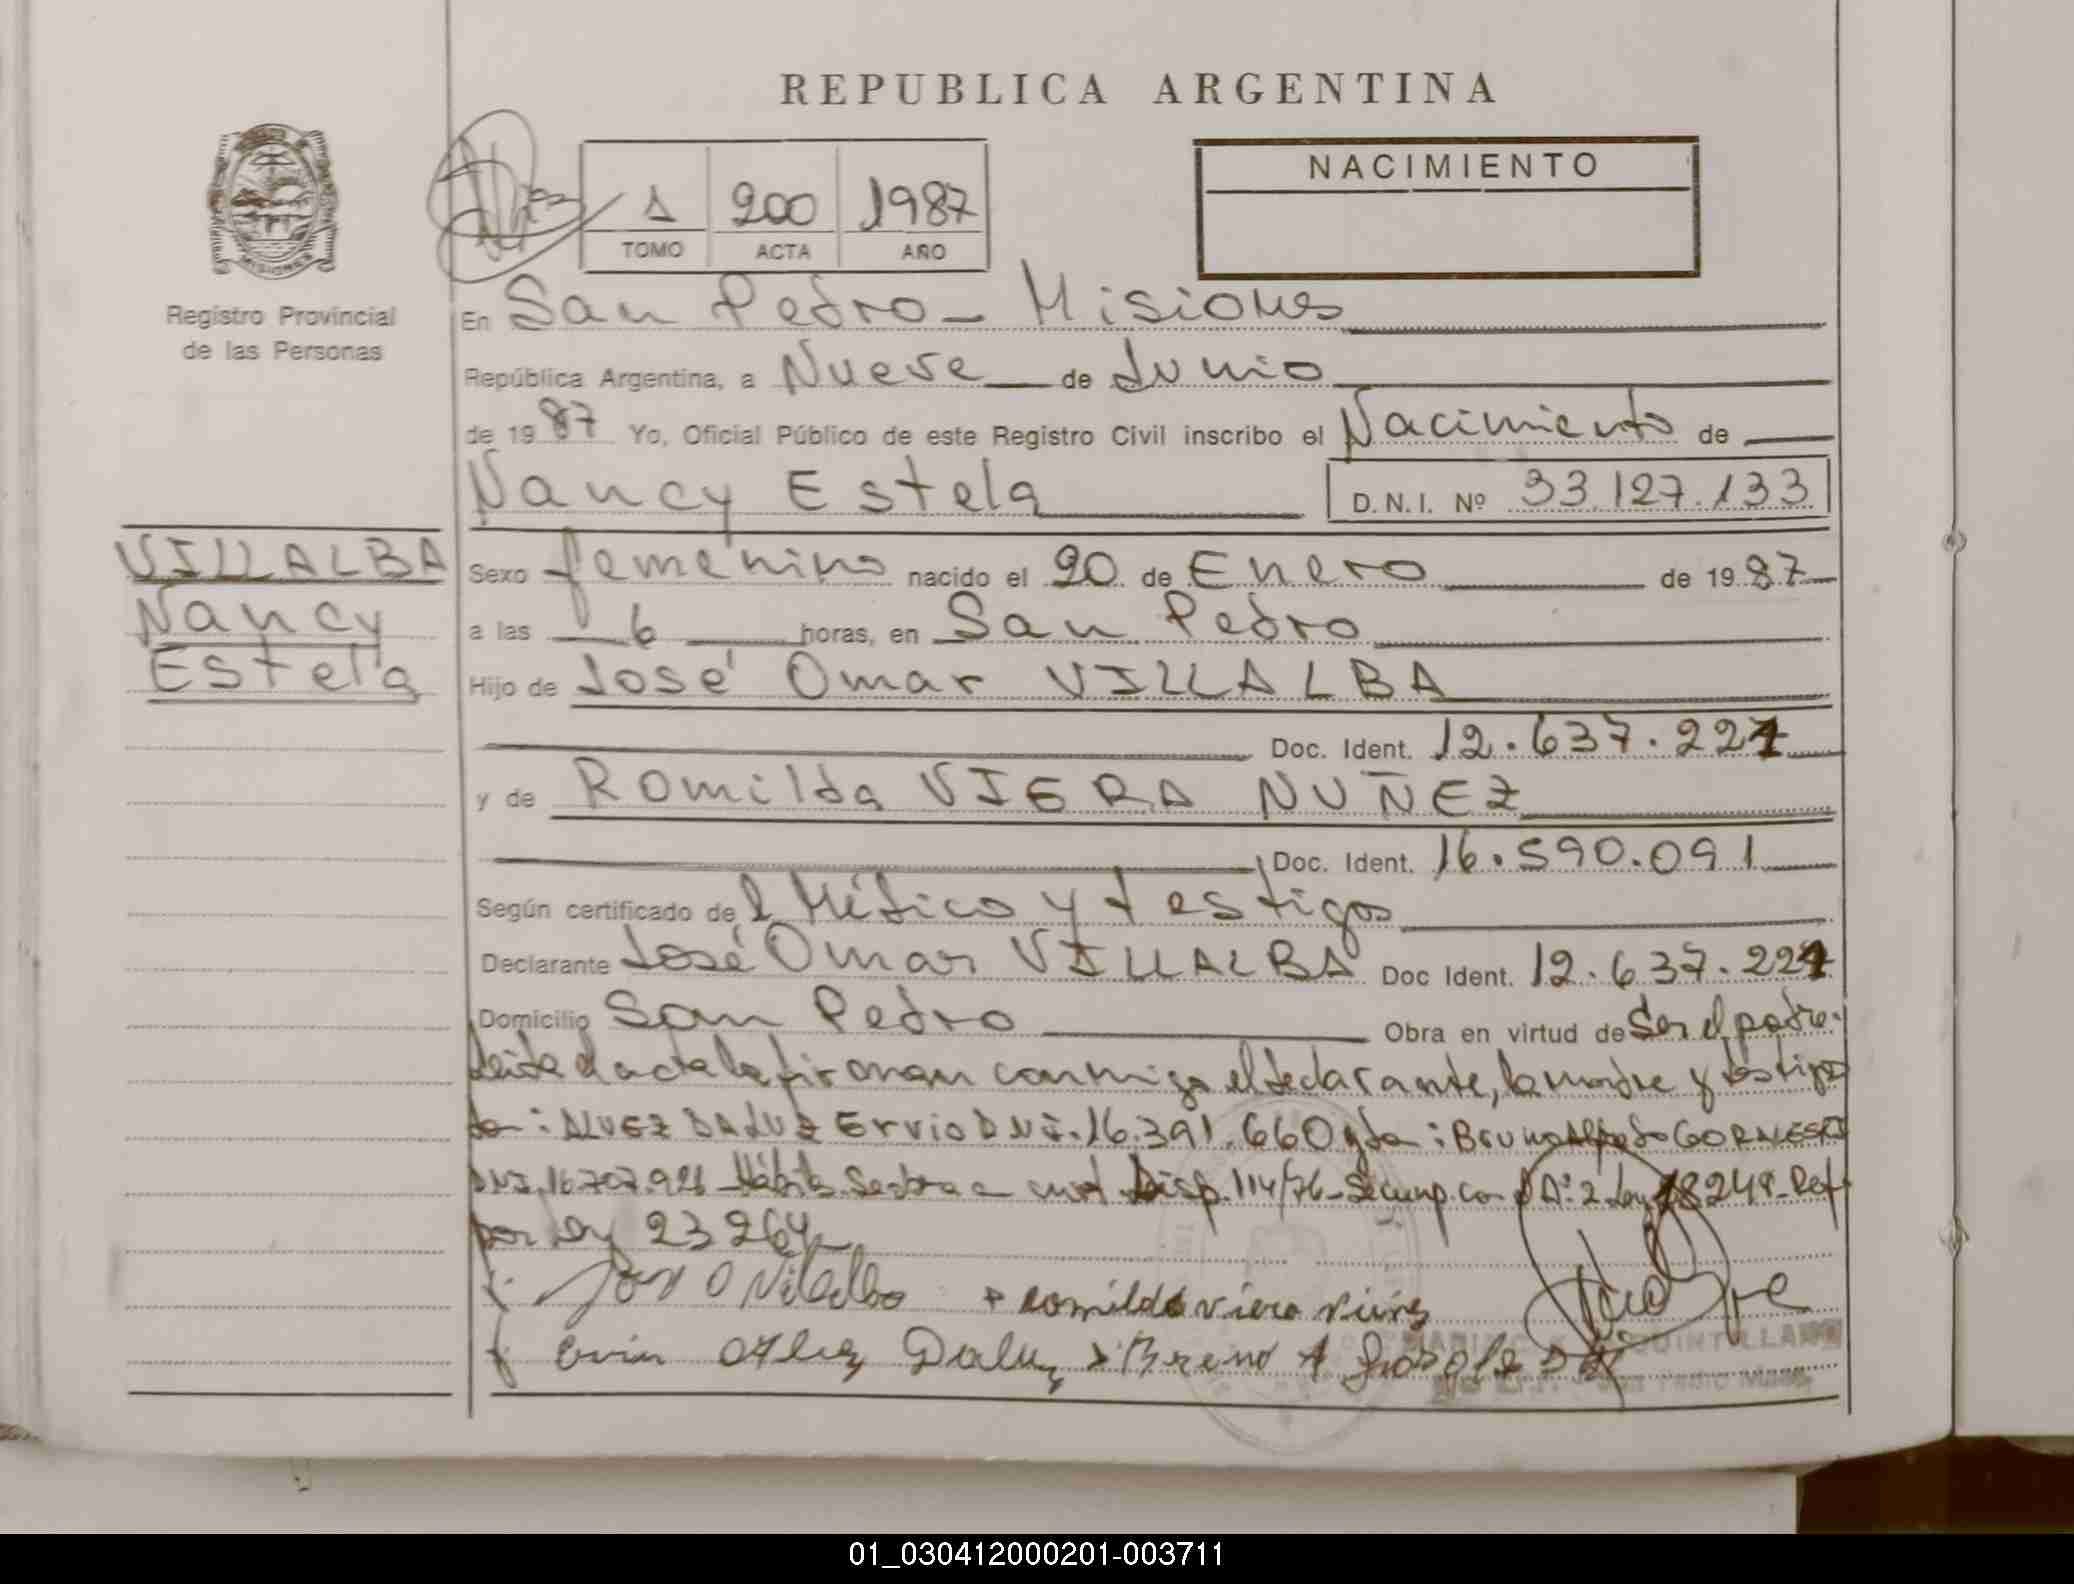 REPUBLICA ARGENTINA
NACIMIENTO
1 200 1987
TOMO ACTA AÑO
MISIONES
Registro Provincial
de las Personas
En San Pedro - Misiones
República Argentina, a Nueve de Junio
de 1987 Yo, Oficial Público de este Registro Civil inscribo el Nacimiento de
Nancy Estela D.N.I. Nº 33.127.133
VILLALBA
Nancy
Estela
Sexo femenino nacido el 20 de Enero de 1987
a las 6 horas, en San Pedro
Hijo de José Omar VILLALBA
Doc. Ident. 12.637.221
y de Romilda VIERA NUÑEZ
Doc. Ident. 16.590.091
Según certificado del Médico y testigos
Declarante José Omar VILLALBA Doc Ident. 12.637.221
Domicilio San Pedro Obra en virtud de Ser el padre.
Leida el acta la firman conmigo el declarante, la madre y testigos
: ALVEZ DALUZ Ervio DNI. 16.391.660 y : Bruno
DNI. 16.707. Disp. 114/76 - Se cump. con el Aº 2 Ley 18248 - Ref
por Ley 23264
José O Villalba + romilda viera
Daluz
QUINTILLAN
San Pedro
01_030412000201-003711